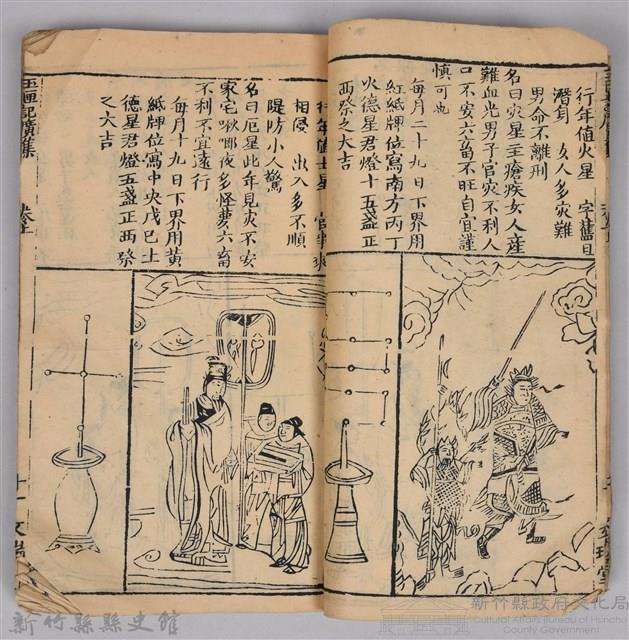 行年值火星
潛身　女人多灾難
男命不離刑
名曰灾星主瘡疾女人産
難血光男子官灾不利人
口不安六畜不旺自宜謹
慎可也
每月二十九日下界用
紅紙牌位寫南方丙丁
火德星君燈十五盞正
西祭之大吉
行年值土星　官事
相侵　出入多不順
隄防小人驚
名曰厄星此年見灾不安
家宅啾唧夜多怪夢六畜
不利不宜遠行
每月十九日下界用黃
紙牌位寫中央戊巳土
德星君燈五盞正西祭
之大吉
玉匣記廣集
十一
文瑞
新竹縣縣史館
新竹縣政府文化局
Cultural Affairs Bureau of Hsinchu
County Government